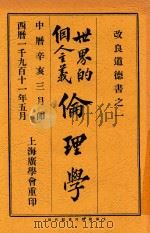 改良道德書之一
世界的
個人主義
倫理學
中曆辛亥三月
西曆一千九百十一年五月
上海廣學會重印